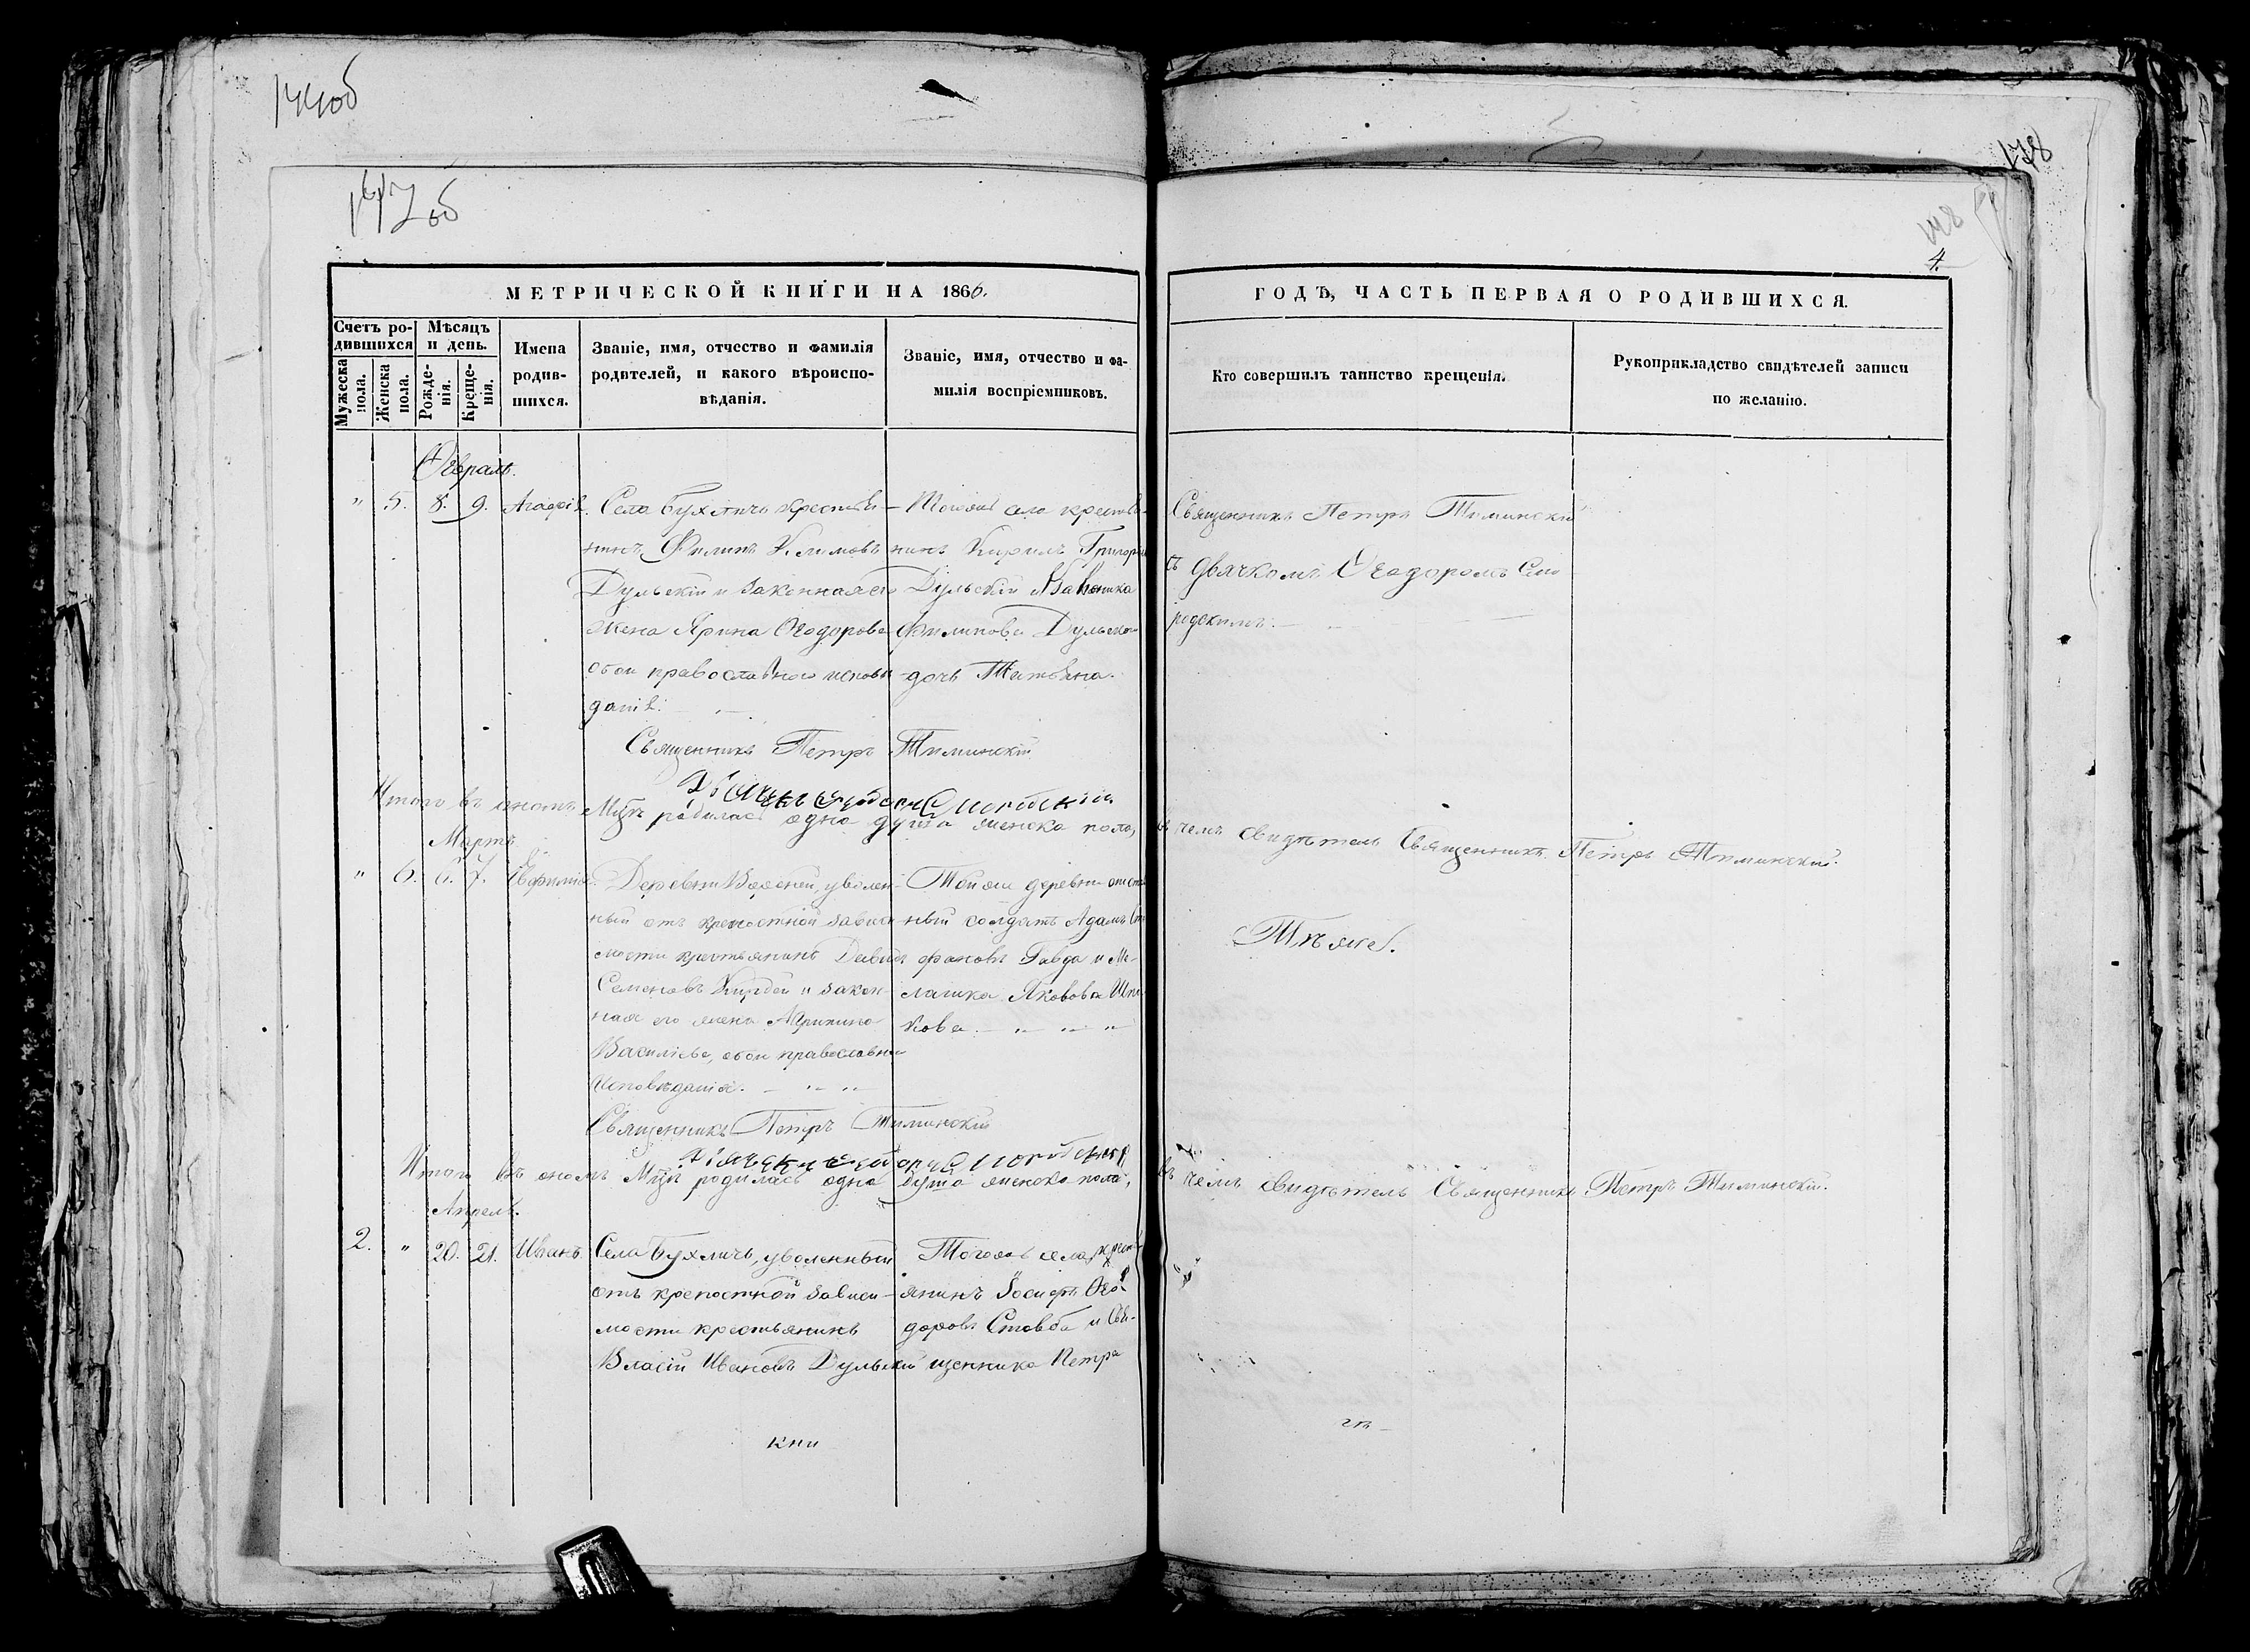 177об
178
148
4.
МЕТРИЧЕСКОЙ КНИГИ НА 1866.
ГОДѢ, ЧАСТЬ ПЕРВАЯ О РОДИВШИХСЯ.
Счетъ ро-
дившихся
Мужеска
пола.
Женска
пола.
Мѣсяцъ
и день.
Рожде-
нія.
Креще-
нія.
Имена
родив-
шихся.
Званіе, имя, отчество и фамилія
родителей, и какого вѣроиспо-
вѣданія.
Званіе, имя, отчество и фа-
милія воспріемниковъ.
Кто совершилъ таинство крещенія.
Рукоприкладство свидѣтелей записи
по желанію.
Февраль.
" 5. 8. 9. Агафія.
Села Бухличъ крестья-
нинъ Филипъ Климовъ
Дульскій и законная его
жена Ярина Ѳеодорова
обои православнаго исповѣ
данія.
Тогожъ села крестья-
нинъ Кирилъ Григорьевъ
Дульскій и
Филипова Дульскаго
дочь Татьяна.
Священникъ Петръ Тиминскій
съ дьячкомъ Ѳеодоромъ Смо
родскимъ.
Священникъ Петръ Тиминскій
Итого въ ономъ Мцѣ родилась одна душа женска пола, въ чемъ свидѣтель Священникъ Петръ Тиминскій.
Мартъ
" 6. 6. 7. Евфимія.
Деревни уволен-
ный отъ крепостной зависи
мости крестьянинъ Давидъ
Семеновъ и закон-
ная его жена
Василіева, обои православнаго
исповѣданія.
Тойже деревни отстав
ный солдатъ Адамъ Сте
фановъ и Ме-
лашка Яковова
кова.
Тѣже.
Священникъ Петръ Тиминскій
Итого въ ономъ Мцѣ родилась одна душа женска пола, въ чемъ свидѣтель Священникъ Петръ Тиминскій.
Апрель.
2. " 20. 21. Иванъ.
Села Бухличъ, уволенный
отъ крепостной зависи-
мости крестьянинъ
Власій Ивановъ Дульскій
Тогожъ села крест
янинъ Іосифъ Ѳео
доровъ Стовба и Свя-
щенника Петра
кни
гѣ